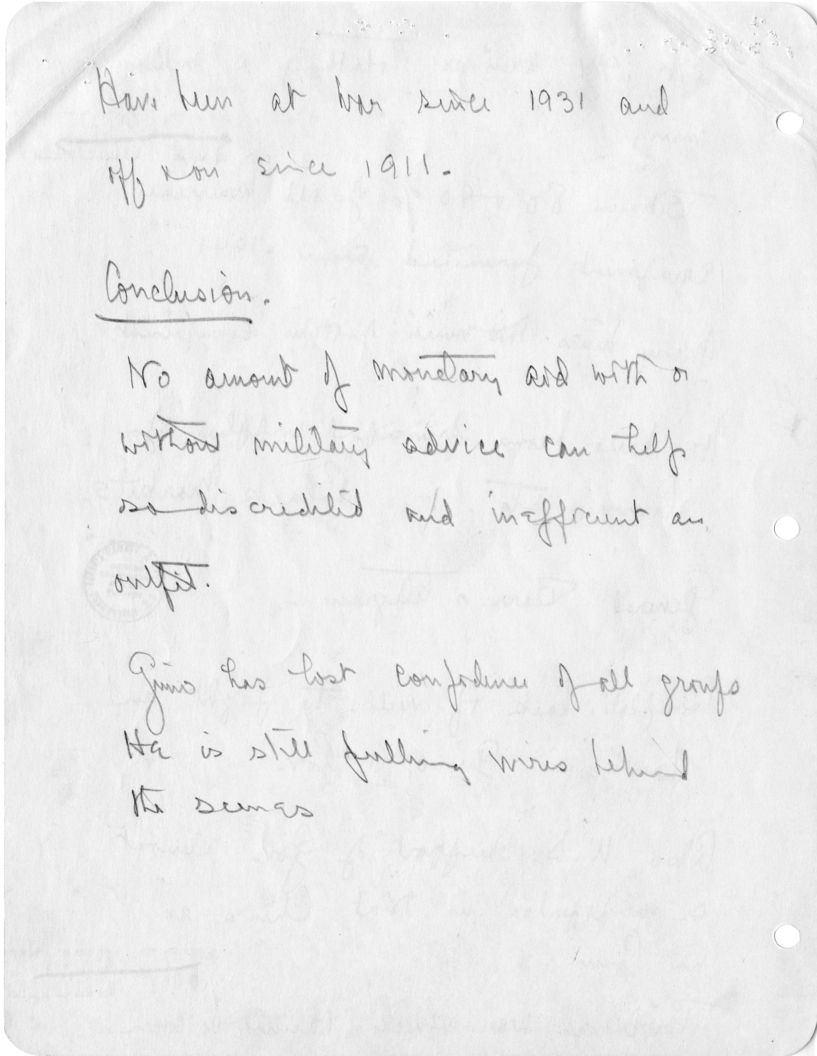 Have been at War since 1931 and
off & on since 1911.
Conclusion.
No amount of monetary aid with or
without military advice can help
so discredited and inefficient an
outfit.
Gimo has lost confidence of all groups
He is still pulling wires behind
the scenes